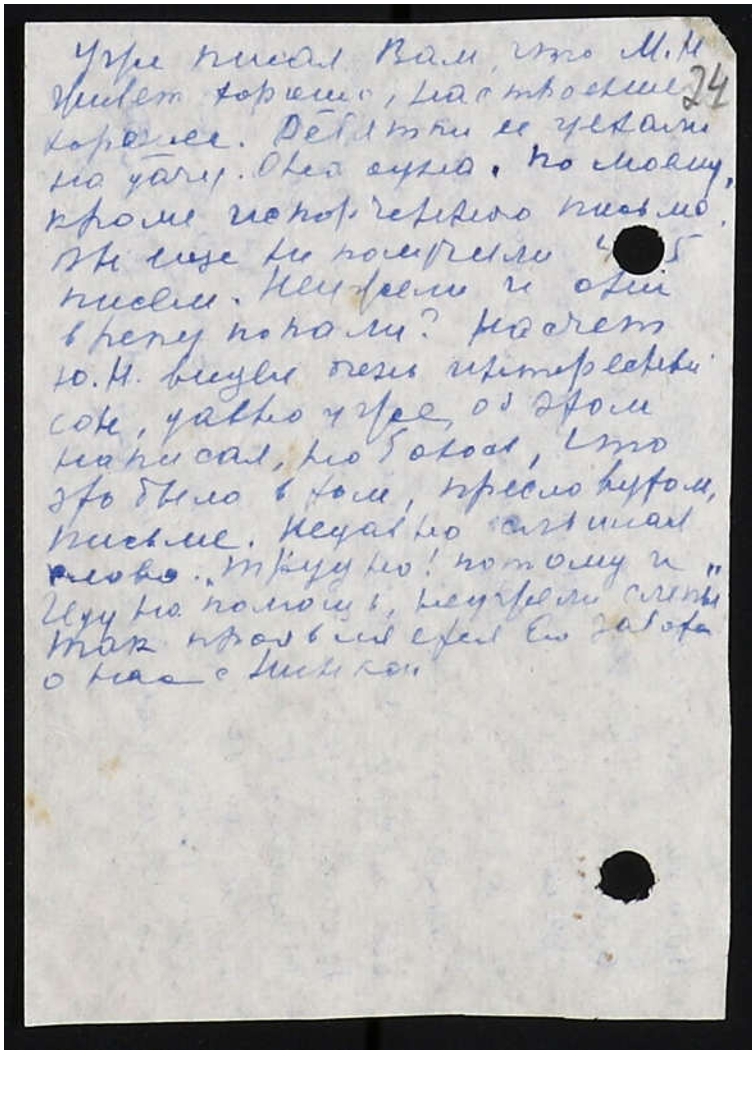 Уже писал Вам, что М.Н
живет хорошо, настроение
24
хорошее. Ребятки ее уехали
на дачу. Она одна. По моему,
кроме испорченного письма,
Вы еще не получили 4 5
писем. Неужели и они
в реку попали? Насчет
Ю.Н. видел очень интересный
сон, давно уже, об этом
написал, но боюсь, что
это было в том, пресловутом,
письме. Недавно слышал
слово: „Трудно! потому и
иду на помощь", неужели
так проявляется Его забота
о нас с Нинкой